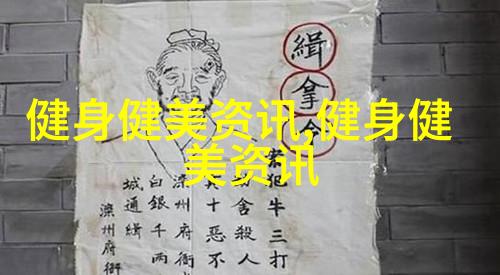 健身健美资讯,健身健
美资讯
緝拿令
案犯牛三打
舍殺人
十惡不
滦州府衙
白銀千两
城通緝
滦州府衙